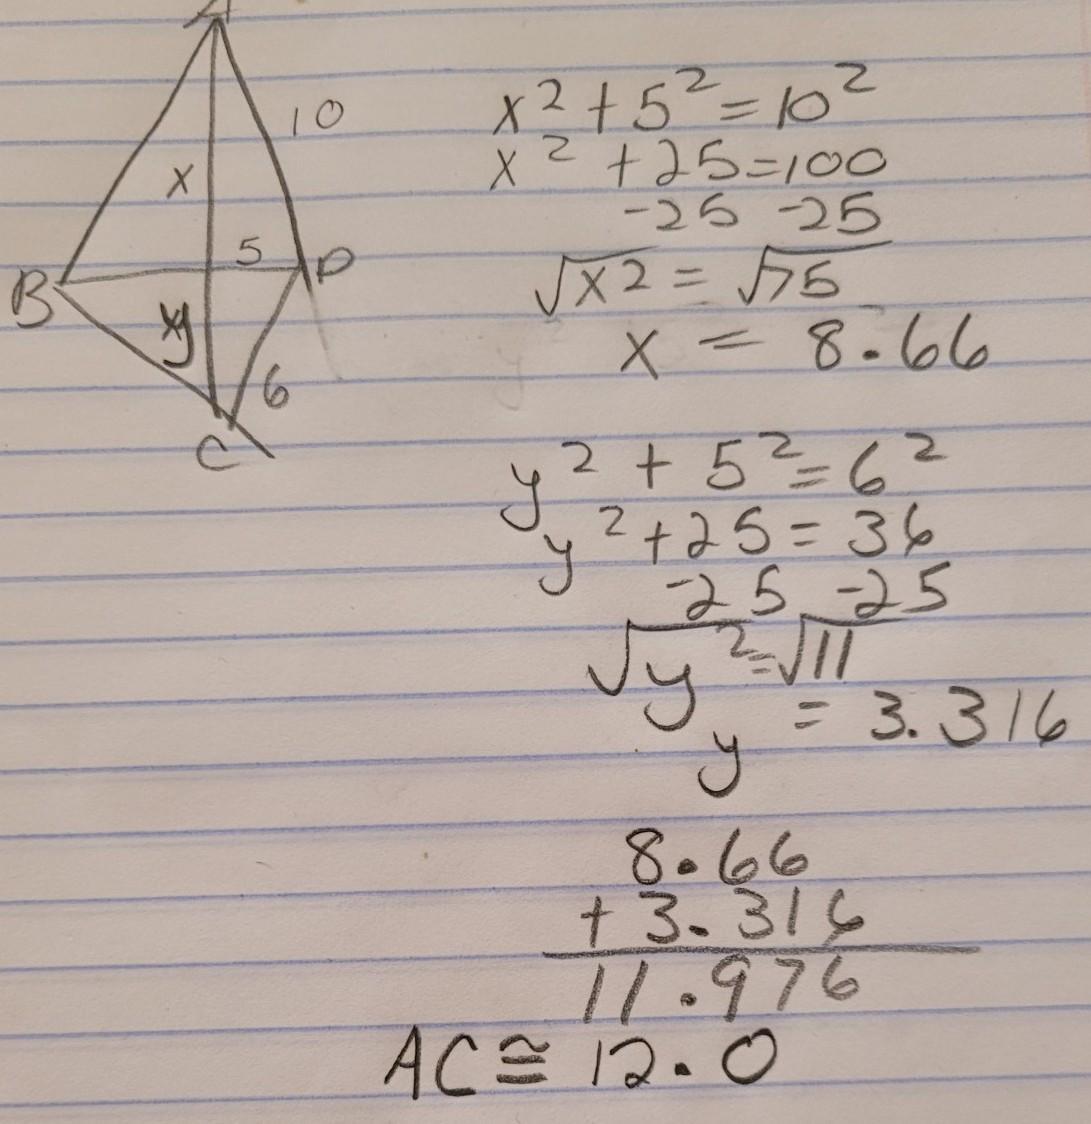 A
10
x
5
B
D
xy
6
C
x² + 5² = 10²
x² + 25 = 100
-25 -25
√x2 = √75
x = 8.66
y² + 5² = 6²
y² + 25 = 36
-25 -25
√y² = √11
y = 3.316
8.66
+ 3.316
11.976
AC ≅ 12.0